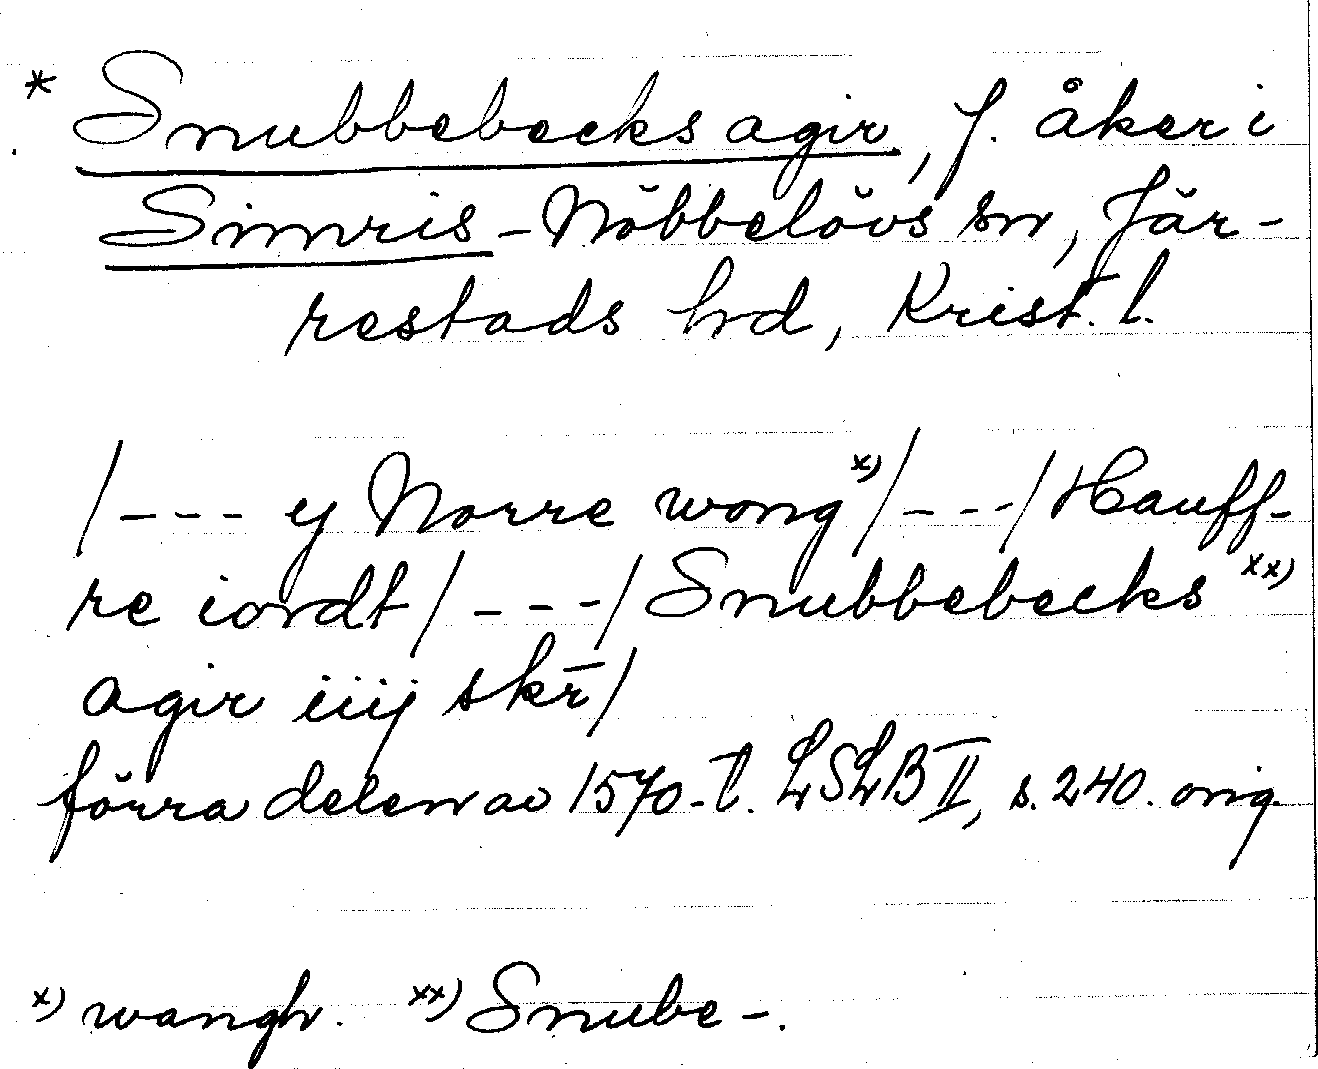 * Snubbebecks agir, f. åker i
Simris-Nöbbelövs sn, Jär-
restads hd, Krist. l.
/--- y Norre wong x)/---/ Hauff-
re iordt/---/ Snubbebecks xx)
agir iiij skr̄/
förra delen av 1570-t. LSLB II, s. 240. orig.
x) wangh. xx) Snube-.